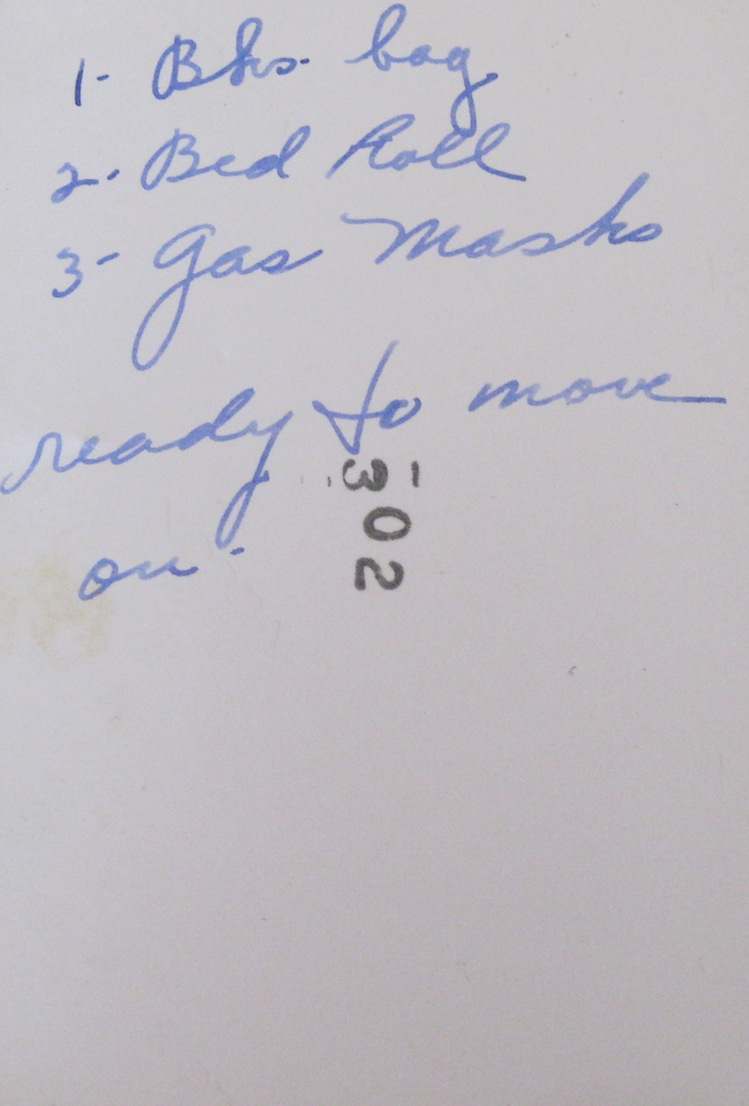 1- Bks. bag
2. Bed Roll
3- Gas Masks
ready to move
on.
302